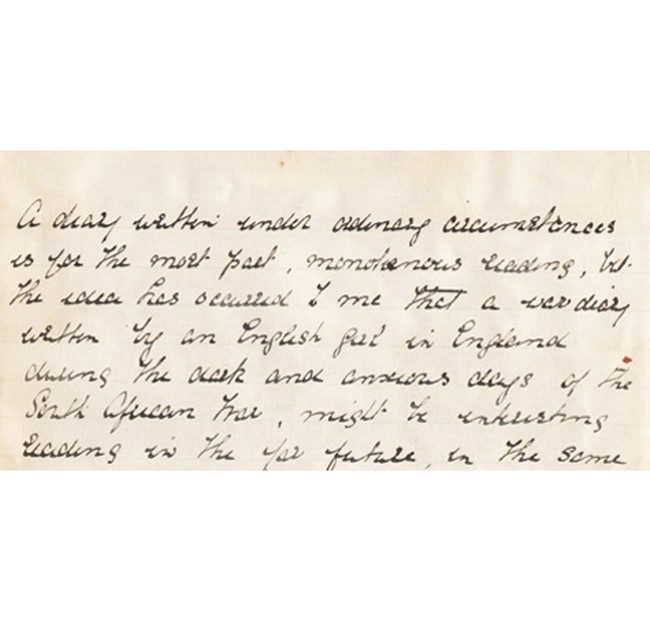 A diary written under ordinary circumstances
is for the most part, monotonous reading, but
the idea has occurred to me that a war diary
written by an English girl in England
during the dark and anxious days of the
South African War, might be interesting
reading in the far future, in the same